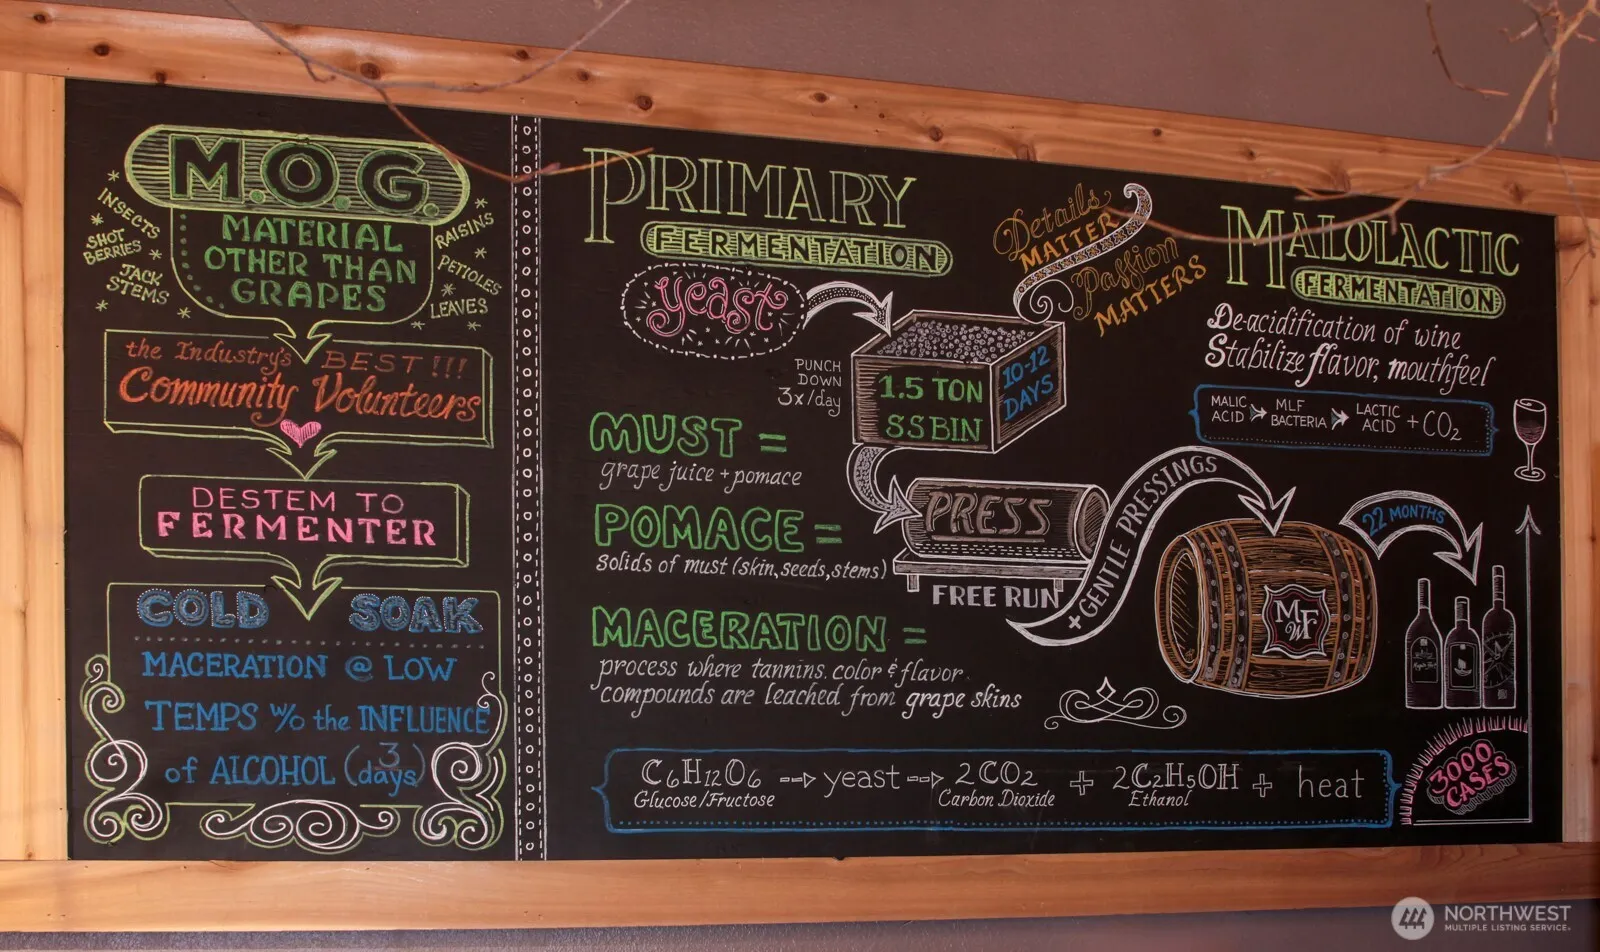 M.O.G.
MATERIAL
OTHER THAN
GRAPES
INSECTS
SHOT
BERRIES
JACK
STEMS
RAISINS
PETIOLES
LEAVES
the Industry's BEST!!!
Community Volunteers
DESTEM TO
FERMENTER
COLD SOAK
MACERATION @ LOW
TEMPS w/o the INFLUENCE
of ALCOHOL (3 days)
PRIMARY
FERMENTATION
yeast
PUNCH
DOWN
3x/day
1.5 TON
SS BIN
10-12
DAYS
Details
MATTER
Passion
MATTERS
MUST =
grape juice + pomace
POMACE =
solids of must (skin, seeds, stems)
MACERATION =
process where tannins, color & flavor
compounds are leached from grape skins
PRESS
FREE RUN
+ GENTLE PRESSINGS
MALOLACTIC
FERMENTATION
De-acidification of wine
Stabilize flavor, mouthfeel
MALIC
ACID
MLF
BACTERIA
LACTIC
ACID
+ CO2
22 MONTHS
MWF
3000
CASES
C6H12O6 --> yeast --> 2CO2 + 2C2H5OH + heat
Glucose/Fructose Carbon Dioxide Ethanol
NORTHWEST
MULTIPLE LISTING SERVICE®